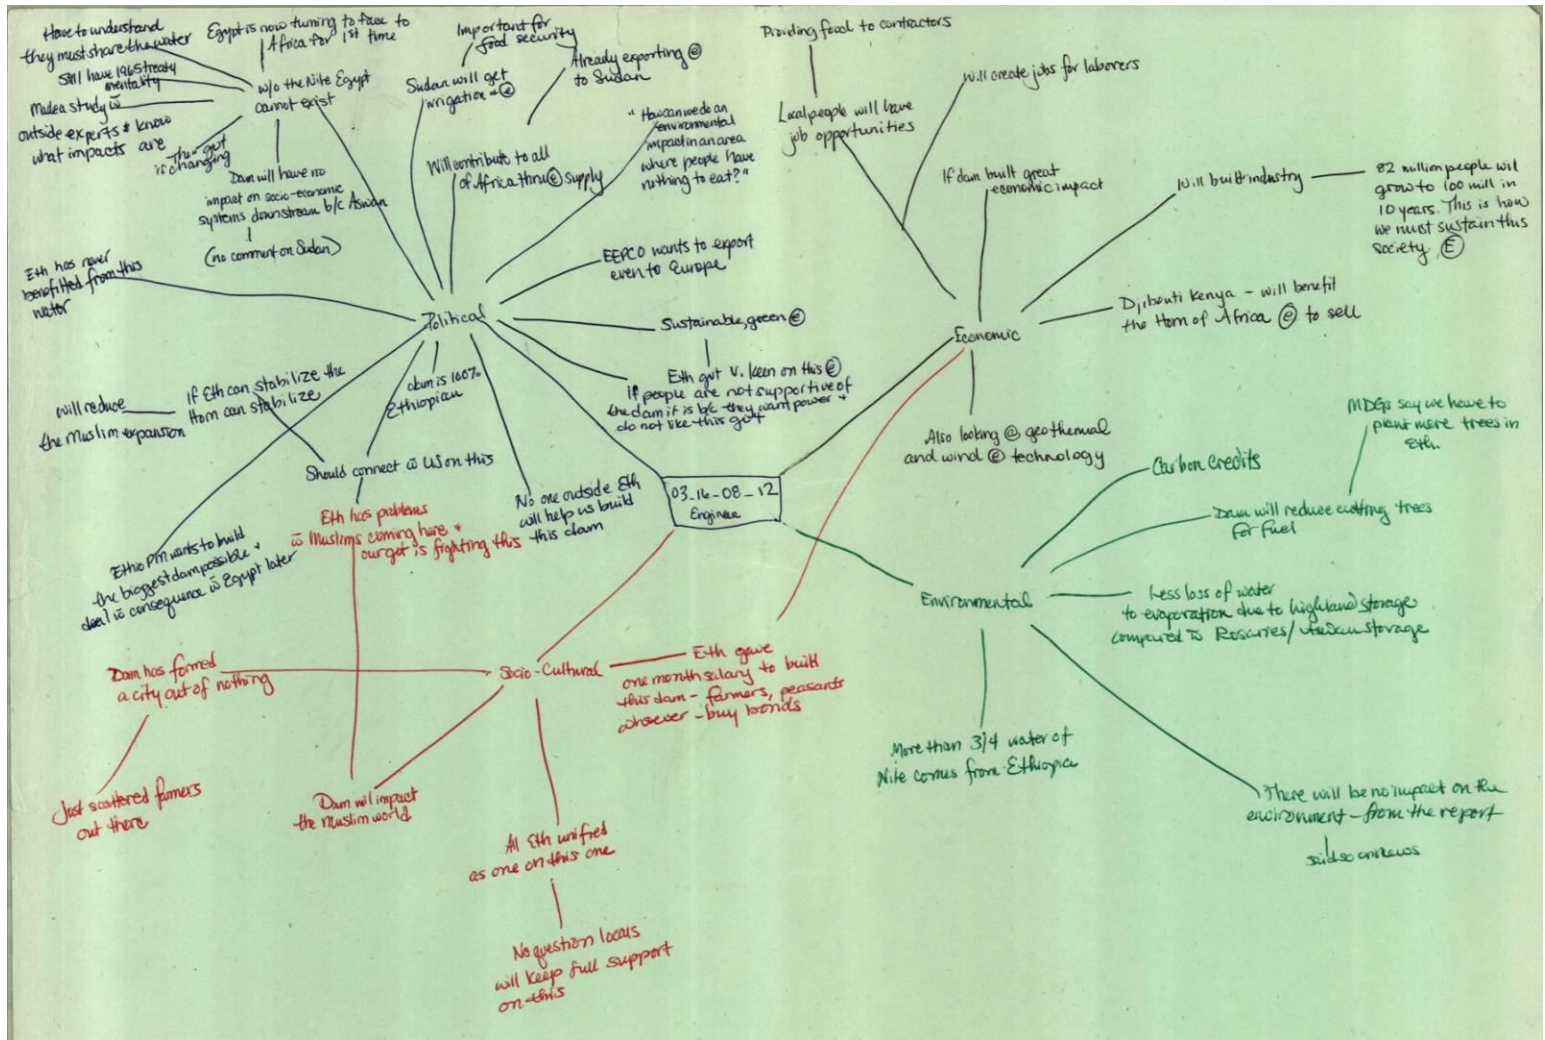 Have to understand
they must share the water
Still have 1965 treaty
mentality
Made a study w̄
outside experts & know
what impacts are
Their gvt
is changing
Egypt is now turning to face to
Africa for 1st time
w/o the Nile Egypt
cannot exist
Dam will have no
impact on socio-economic
systems downstream b/c Aswan
(no comment on Sudan)
Important for
food security
Sudan will get
irrigation + ⓔ
Already exporting ⓔ
to Sudan
Will contribute to all
of Africa thru ⓔ supply
"How can we do an
environmental
impact in an area
where people have
nothing to eat?"
EEPCO wants to export
even to Europe
Eth has never
benefitted from this
water
Political
Sustainable, green ⓔ
Eth gvt v. keen on this ⓔ
If people are not supportive of
the dam it is b/c they want power +
do not like this gvt
If Eth can stabilize the
Horn can stabilize
will reduce
the Muslim expansion
dam is 100%
Ethiopian
Should connect w̄ US on this
Eth has problems
w̄ Muslims coming here +
our gvt is fighting this
No one outside Eth
will help us build
this dam
Ethio PM wants to build
the biggest dam possible +
deal w̄ consequence w̄ Egypt later
03-16-08-12
Engineer
Providing food to contractors
Local people will have
job opportunities
Will create jobs for laborers
If dam built great
economic impact
Will built industry
82 million people will
grow to 100 mill in
10 years. This is how
we must sustain this
society. Ⓔ
Djibouti Kenya - will benefit
the Horn of Africa ⓔ to sell
Economic
Also looking @ geothermal
and wind ⓔ technology
MDGs say we have to
plant more trees in
Eth.
Carbon credits
Dam will reduce cutting trees
for fuel
Environmental
Less loss of water
to evaporation due to highland storage
compared to Rosaries/Aswan storage
More than 3/4 water of
Nile comes from Ethiopia
There will be no impact on the
environment - from the report
said so on news
Socio-Cultural
Dam has formed
a city out of nothing
Just scattered farmers
out there
Dam will impact
the Muslim world
Eth gave
one month salary to built
this dam - farmers, peasants
whoever - buy bonds
All Eth unified
as one on this one
No question locals
will keep full support
on this